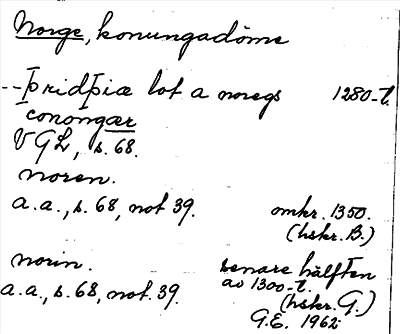 Norge, konungadöme
--Þridþiæ lot a noregs 1280-t.
conongær
VGL, s. 68.
noren.
a.a., s. 68, not 39. omkr. 1350.
(hskr. B.)
norin. senare hälften
a.a., s. 68, not. 39. av 1300-t.
(hskr. G.)
G.E. 1962